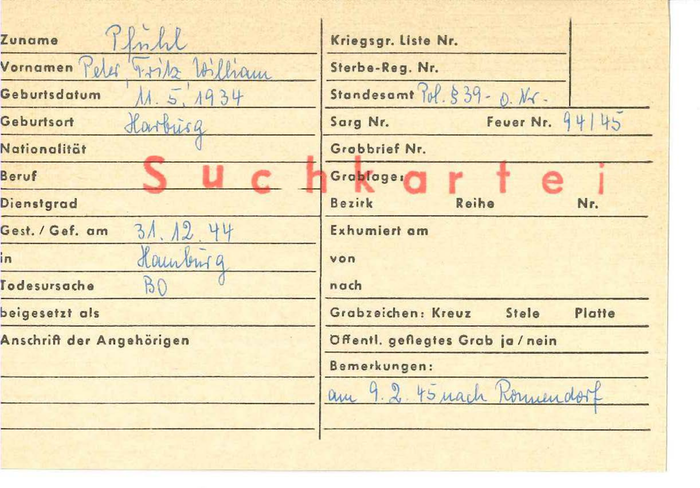 Zuname Pfühl
Vornamen Peter, Fritz, William
Geburtsdatum 11.5.1934
Geburtsort Harburg
Nationalität
Beruf
Dienstgrad
Gest./Gef. am 31.12.44
in Hamburg
Todesursache BO
beigesetzt als
Anschrift der Angehörigen
Suchkartei
Kriegsgr. Liste Nr.
Sterbe-Reg. Nr.
Standesamt Pol. § 39- o. Nr.
Sarg Nr. Feuer Nr. 94/45
Grabbrief Nr.
Grablage:
Bezirk Reihe Nr.
Exhumiert am
von
nach
Grabzeichen: Kreuz Stele Platte
Öffentl. gepflegtes Grab ja/nein
Bemerkungen:
am 9.2.45 nach Ronnendorf